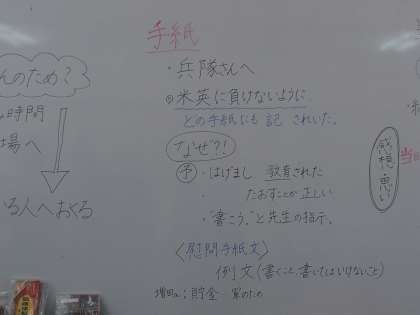 手紙
んのため？
・兵隊さんへ
◎米英に負けないように
時間
どの手紙にも 記 されいた。
場へ
なぜ？！
予・はげまし 教育された
・たおすことが正しい
る人へおくる
・"書こう。"と先生の指示。
感想・思い
当
〈慰問手紙文〉
例文(書くこと、書いてはいけないこと)
：貯金 軍のため